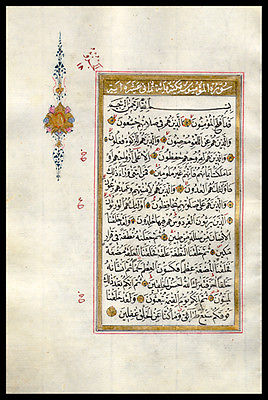 سورة المؤمنون مكية مائة وثماني عشرة آية
بسم الله الرحمن الرحيم
قد افلح المؤمنون الذين هم في صلاتهم خاشعون
والذين هم عن اللغو معرضون والذين هم للزكوة فاعلون
والذين هم لفروجهم حافظون الا على ازواجهم او
ما ملكت ايمانهم فانهم غير ملومين فمن ابتغى وراء ذلك
فاولئك هم العادون والذين هم لاماناتهم وعهدهم راعون
والذين هم على صلواتهم يحافظون اولئك هم الوارثون
الذين يرثون الفردوس هم فيها خالدون ولقد خلقنا
الانسان من سلالة من طين ثم جعلناه نطفة في قرار
مكين ثم خلقنا النطفة علقة فخلقنا العلقة مضغة
فخلقنا المضغة عظاما فكسونا العظام لحما ثم انشأناه
خلقا آخر فتبارك الله احسن الخالقين ثم انكم بعد ذلك
لميتون ثم انكم يوم القيمة تبعثون ولقد خلقنا
فوقكم سبع طرائق وما كنا عن الخلق غافلين